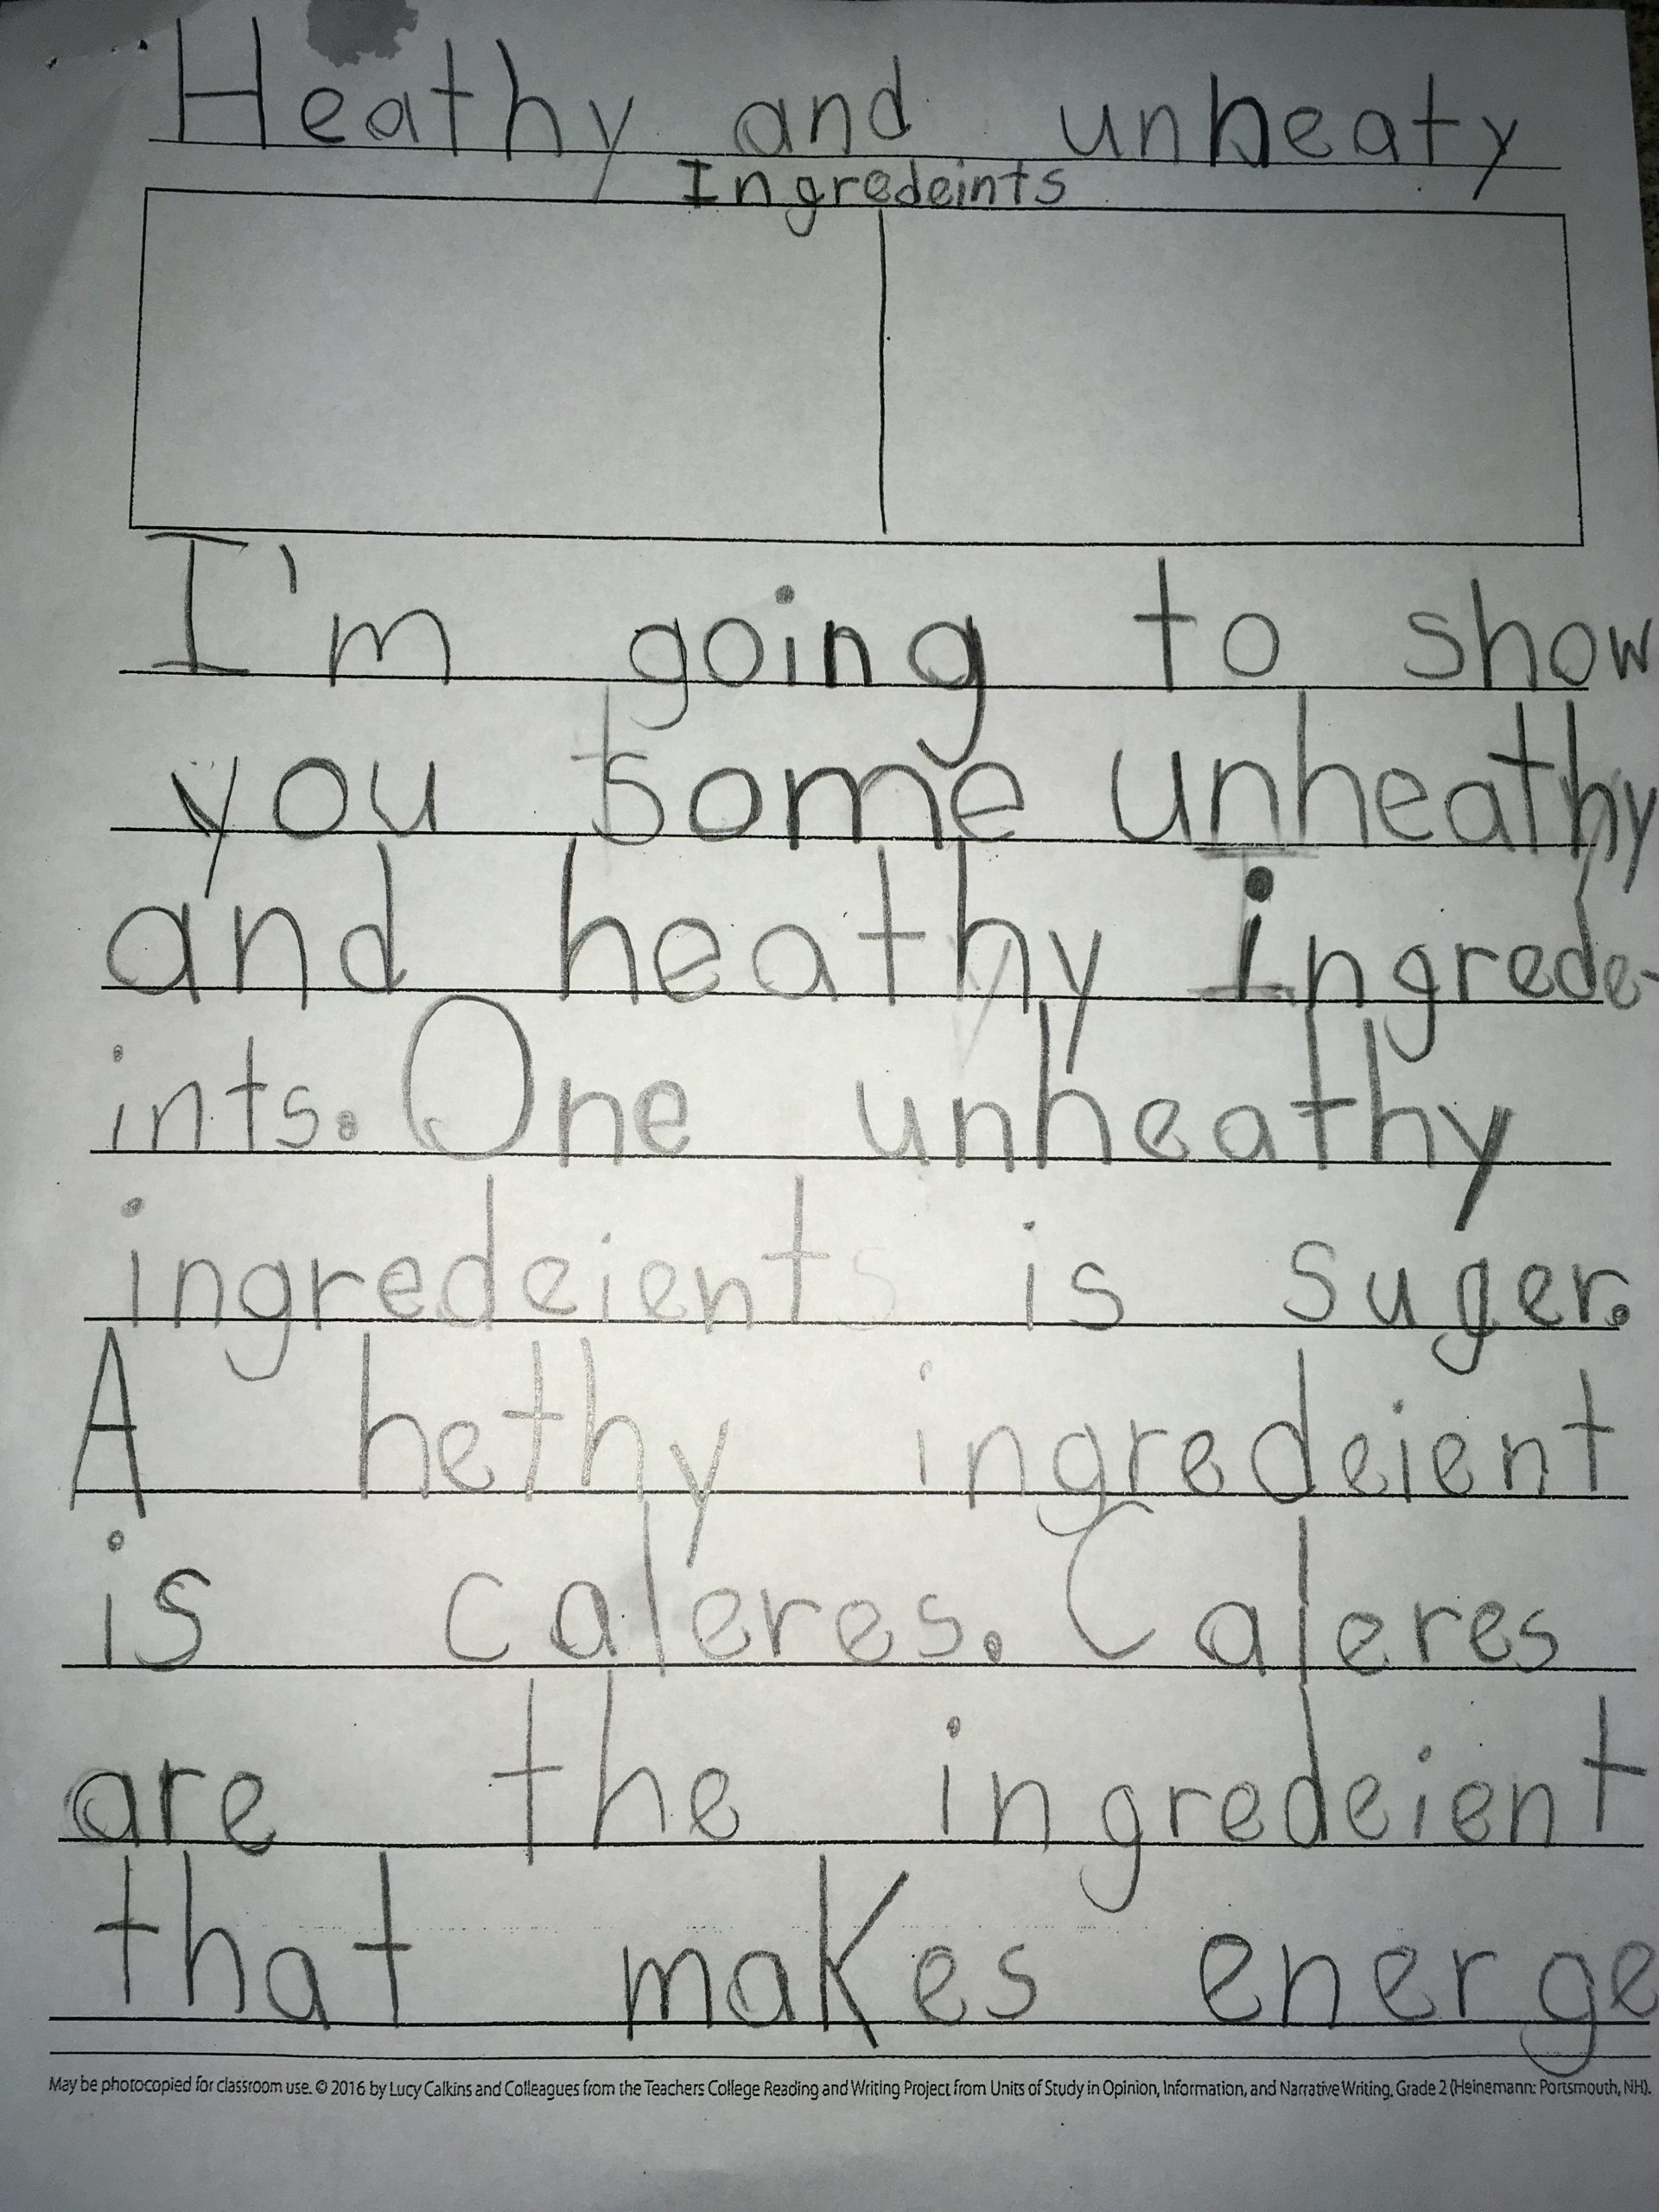 Heathy and unheaty
Ingredeints
I'm going to show
you some unheathy
and heathy ingrede-
ints. One unheathy
ingredeient is suger.
A hethy ingredeient
is caleres. Caleres
are the ingredeient
that makes energe
May be photocopied for classroom use. © 2016 by Lucy Calkins and Colleagues from the Teachers College Reading and Writing Project from Units of Study in Opinion, Information, and Narrative Writing, Grade 2 (Heinemann: Portsmouth, NH).